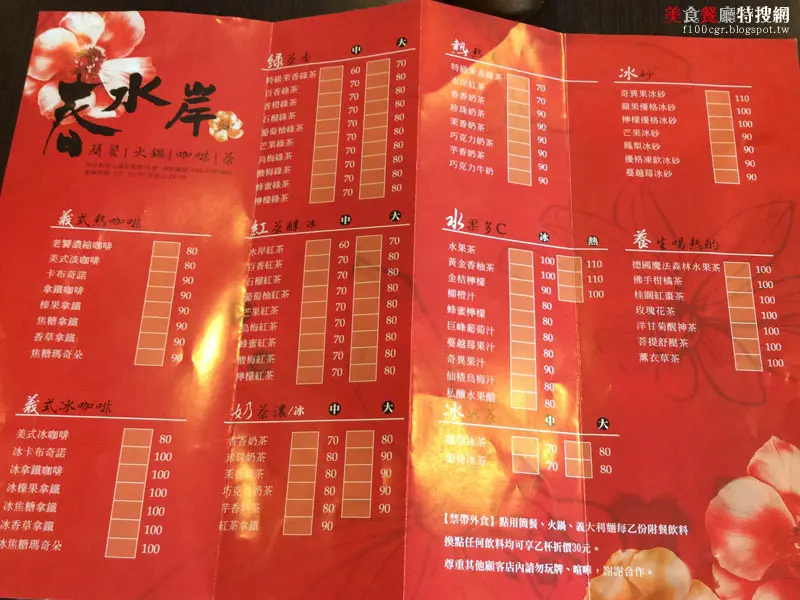 美食餐廳特搜網
f100cgr.blogspot.tw
春水岸
簡餐|火鍋|咖啡|茶
義式熱咖啡
老饕濃縮咖啡 80
美式淡咖啡 80
卡布奇諾 90
拿鐵咖啡 90
榛果拿鐵 90
焦糖拿鐵 90
香草拿鐵 90
焦糖瑪奇朵 90
義式冰咖啡
美式冰咖啡 80
冰卡布奇諾 100
冰拿鐵咖啡 100
冰榛果拿鐵 100
冰焦糖拿鐵 100
冰香草拿鐵 100
冰焦糖瑪奇朵 100
綠茶 中 大
特級茉香綠茶 60 70
百香綠茶 70 80
香橙綠茶 70 80
石榴綠茶 70 80
葡萄柚綠茶 70 80
芒果綠茶 70 80
烏梅綠茶 70 80
酸梅綠茶 70 80
蜂蜜綠茶 70 80
檸檬綠茶 70 80
紅茶醇/冰 中 大
水岸紅茶 60 70
百香紅茶 70 80
石榴紅茶 70 80
葡萄柚紅茶 70 80
芒果紅茶 70 80
烏梅紅茶 70 80
蜂蜜紅茶 70 80
酸梅紅茶 70 80
檸檬紅茶 70 80
奶茶濃/冰 中 大
香香奶茶 70 80
珍珠奶茶 80 90
茉香奶茶 80 90
巧克力奶茶 80 90
芋香奶茶 80 90
紅茶拿鐵 90
熱
特級茉香綠茶 70
水岸紅茶 70
香香奶茶 70
珍珠奶茶 90
茉香奶茶 80
巧克力奶茶 90
芋香奶茶 90
巧克力牛奶 90
冰砂
奇異果冰砂 110
蘋果優格冰砂 100
檸檬優格冰砂 100
芒果冰砂 90
鳳梨冰砂 90
優格凍飲冰砂 90
蔓越莓冰砂 90
水果多C 冰 熱
水果茶 100 110
黃金香柚茶 100 110
金桔檸檬 80 100
柳橙汁 90
蜂蜜檸檬 80
巨峰葡萄汁 80
蔓越莓果汁 80
奇異果汁 90
仙楂烏梅汁 80
私釀水果醋 80
養生喝熱的
德國魔法森林水果茶 100
佛手柑橘茶 100
桂圓紅棗茶 100
玫瑰花茶 90
洋甘菊醒神茶 90
菩提舒壓茶 90
薰衣草茶 90
冰 中 大
冰茶 70 80
70 80
【禁帶外食】點用簡餐、火鍋、義大利麵每乙份附餐飲料
換點任何飲料均可享乙杯折價30元。
尊重其他顧客店內請勿玩牌、喧嘩，謝謝合作。